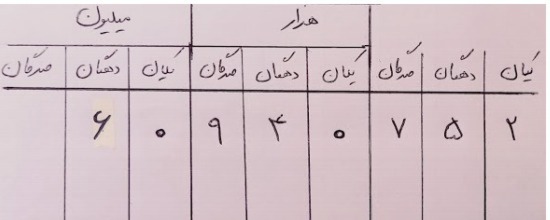 هزار میلیون
یکان دهگان صدگان یکان دهگان صدگان یکان دهگان صدگان
۲ ۵ ۷ ۰ ۴ ۹ ۰ ۶